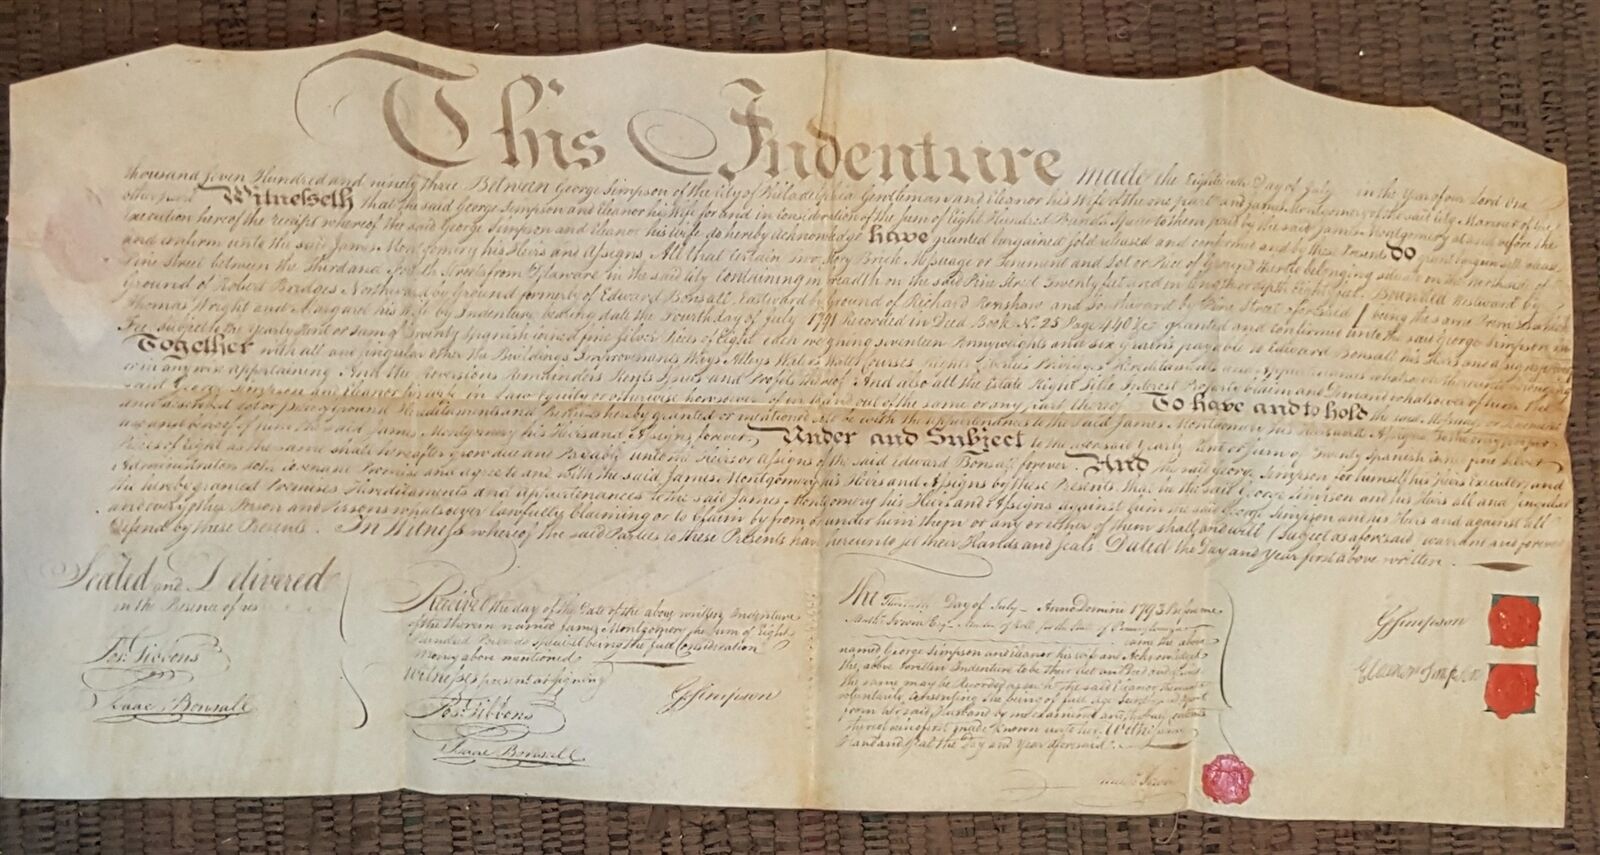 This Indenture made the Eighteenth Day of July in the Year of our Lord One
thousand seven Hundred and ninety three Between George Simpson of the City of Philadelphia Gentleman and Eleanor his Wife of the one part and James Montgomery of the said City Marriner of the
other part Witnesseth that the said George Simpson and Eleanor his Wife for and in consideration of the sum of Eight Hundred Pounds Specie to them paid by the said James Montgomery at and before the
Execution hereof the receipt whereof the said George Simpson and Eleanor his wife do hereby acknowledge have granted bargained sold released and confirmed and by these Presents Do grant bargain sell release
and confirm unto the said James Montgomery his Heirs and Assigns All that certain two Story Brick Messuage or Tenement and Lot or Piece of Ground thereto belonging situate on the north side of
Pine Street between the Third and Fourth Streets from Delaware in the said City Containing in breadth on the said Pine Street Twenty feet and in length or depth Eighty feet Bounded Westward by
Ground of Robert Bridges Northward by Ground formerly of Edward Bonsall Eastward by Ground of Richard Renshaw and Southward by Pine Street aforesaid being the same Premises which
Thomas Wright and Margaret his Wife by Indenture bearing date the Fourth day of July 1791 Recorded in Deed Book No. 25 Page 440 &c granted and confirmed unto the said George Simpson in
Fee subject to the yearly Rent or Sum of Twenty Spanish coined fine Silver Pieces of Eight each weighing seventeen Pennyweights and six Grains payable to Edward Bonsall his Heirs and Assigns
Together with all and singular other the Buildings Improvements Ways Alleys Waters Water Courses Rights Priviledges Hereditaments and Appurtenances whatsoever thereunto belonging
or in any wise appertaining And the Reversions Remainders Rents Issues and Profits thereof And also all the Estate Right Title Interest Property Claim and Demand whatsoever of them the
said George Simpson and Eleanor his wife in Law Equity or otherwise howsoever of in to and out of the same or any part thereof To have and to hold the said Messuage or Tenement
and Lot or piece of Ground Hereditaments and Premises hereby granted or mentioned with the appurtenances to the said James Montgomery his Heirs and Assigns To the only proper
use and behoof of him the said James Montgomery his Heirs and Assigns forever Under and Subject to the aforesaid Yearly Rent or Sum of Twenty Spanish coined fine Silver
Pieces of Eight as the same shall hereafter grow due and Payable unto the Heirs or Assigns of the said Edward Bonsall forever And the said George Simpson for himself his Heirs Executors and
Administrators doth Covenant Promise and agree to and with the said James Montgomery his Heirs and Assigns by these Presents that he the said George Simpson and his Heirs all and singular
the hereby granted Premises Hereditaments and appurtenances to the said James Montgomery his Heirs and Assigns against him the said George Simpson and his Heirs and against all
and every other Person and Persons whatsoever lawfully claiming or to Claim by from or under him them or any or either of them shall and will (Subject as aforesaid warrant and forever
defend by these Presents. In Witness whereof the said Parties to these Presents have hereunto set their Hands and Seals Dated the Day and Year first above written
Sealed and Delivered
in the Presence of us
Jos. Gibbons
Isaac Bonsall
Received the day of the Date of the above written Indenture
of the therein named James Montgomery the Sum of Eight
Hundred Pounds specie it being the full Consideration
money above mentioned
Witnesses present at signing
G Simpson
Jos. Gibbons
Isaac Bonsall
The Day of July Anno Domini 1793 Before me
Math. Irwin Esq. Master of Rolls for the State of Pennsylvania
came the above
named George Simpson and Eleanor his wife and Acknowledged
the above written Indenture to be their Act and Deed and desired
the same may be Recorded as such the said Eleanor thereunto
voluntarily consenting She being of full Age Secretly and apart
from her said Husband by me examined and the full contents
thereof being first made known unto her. Witness my
Hand and Seal the Day and Year aforesaid
Math. Irwin
G Simpson
Eleanor Simpson